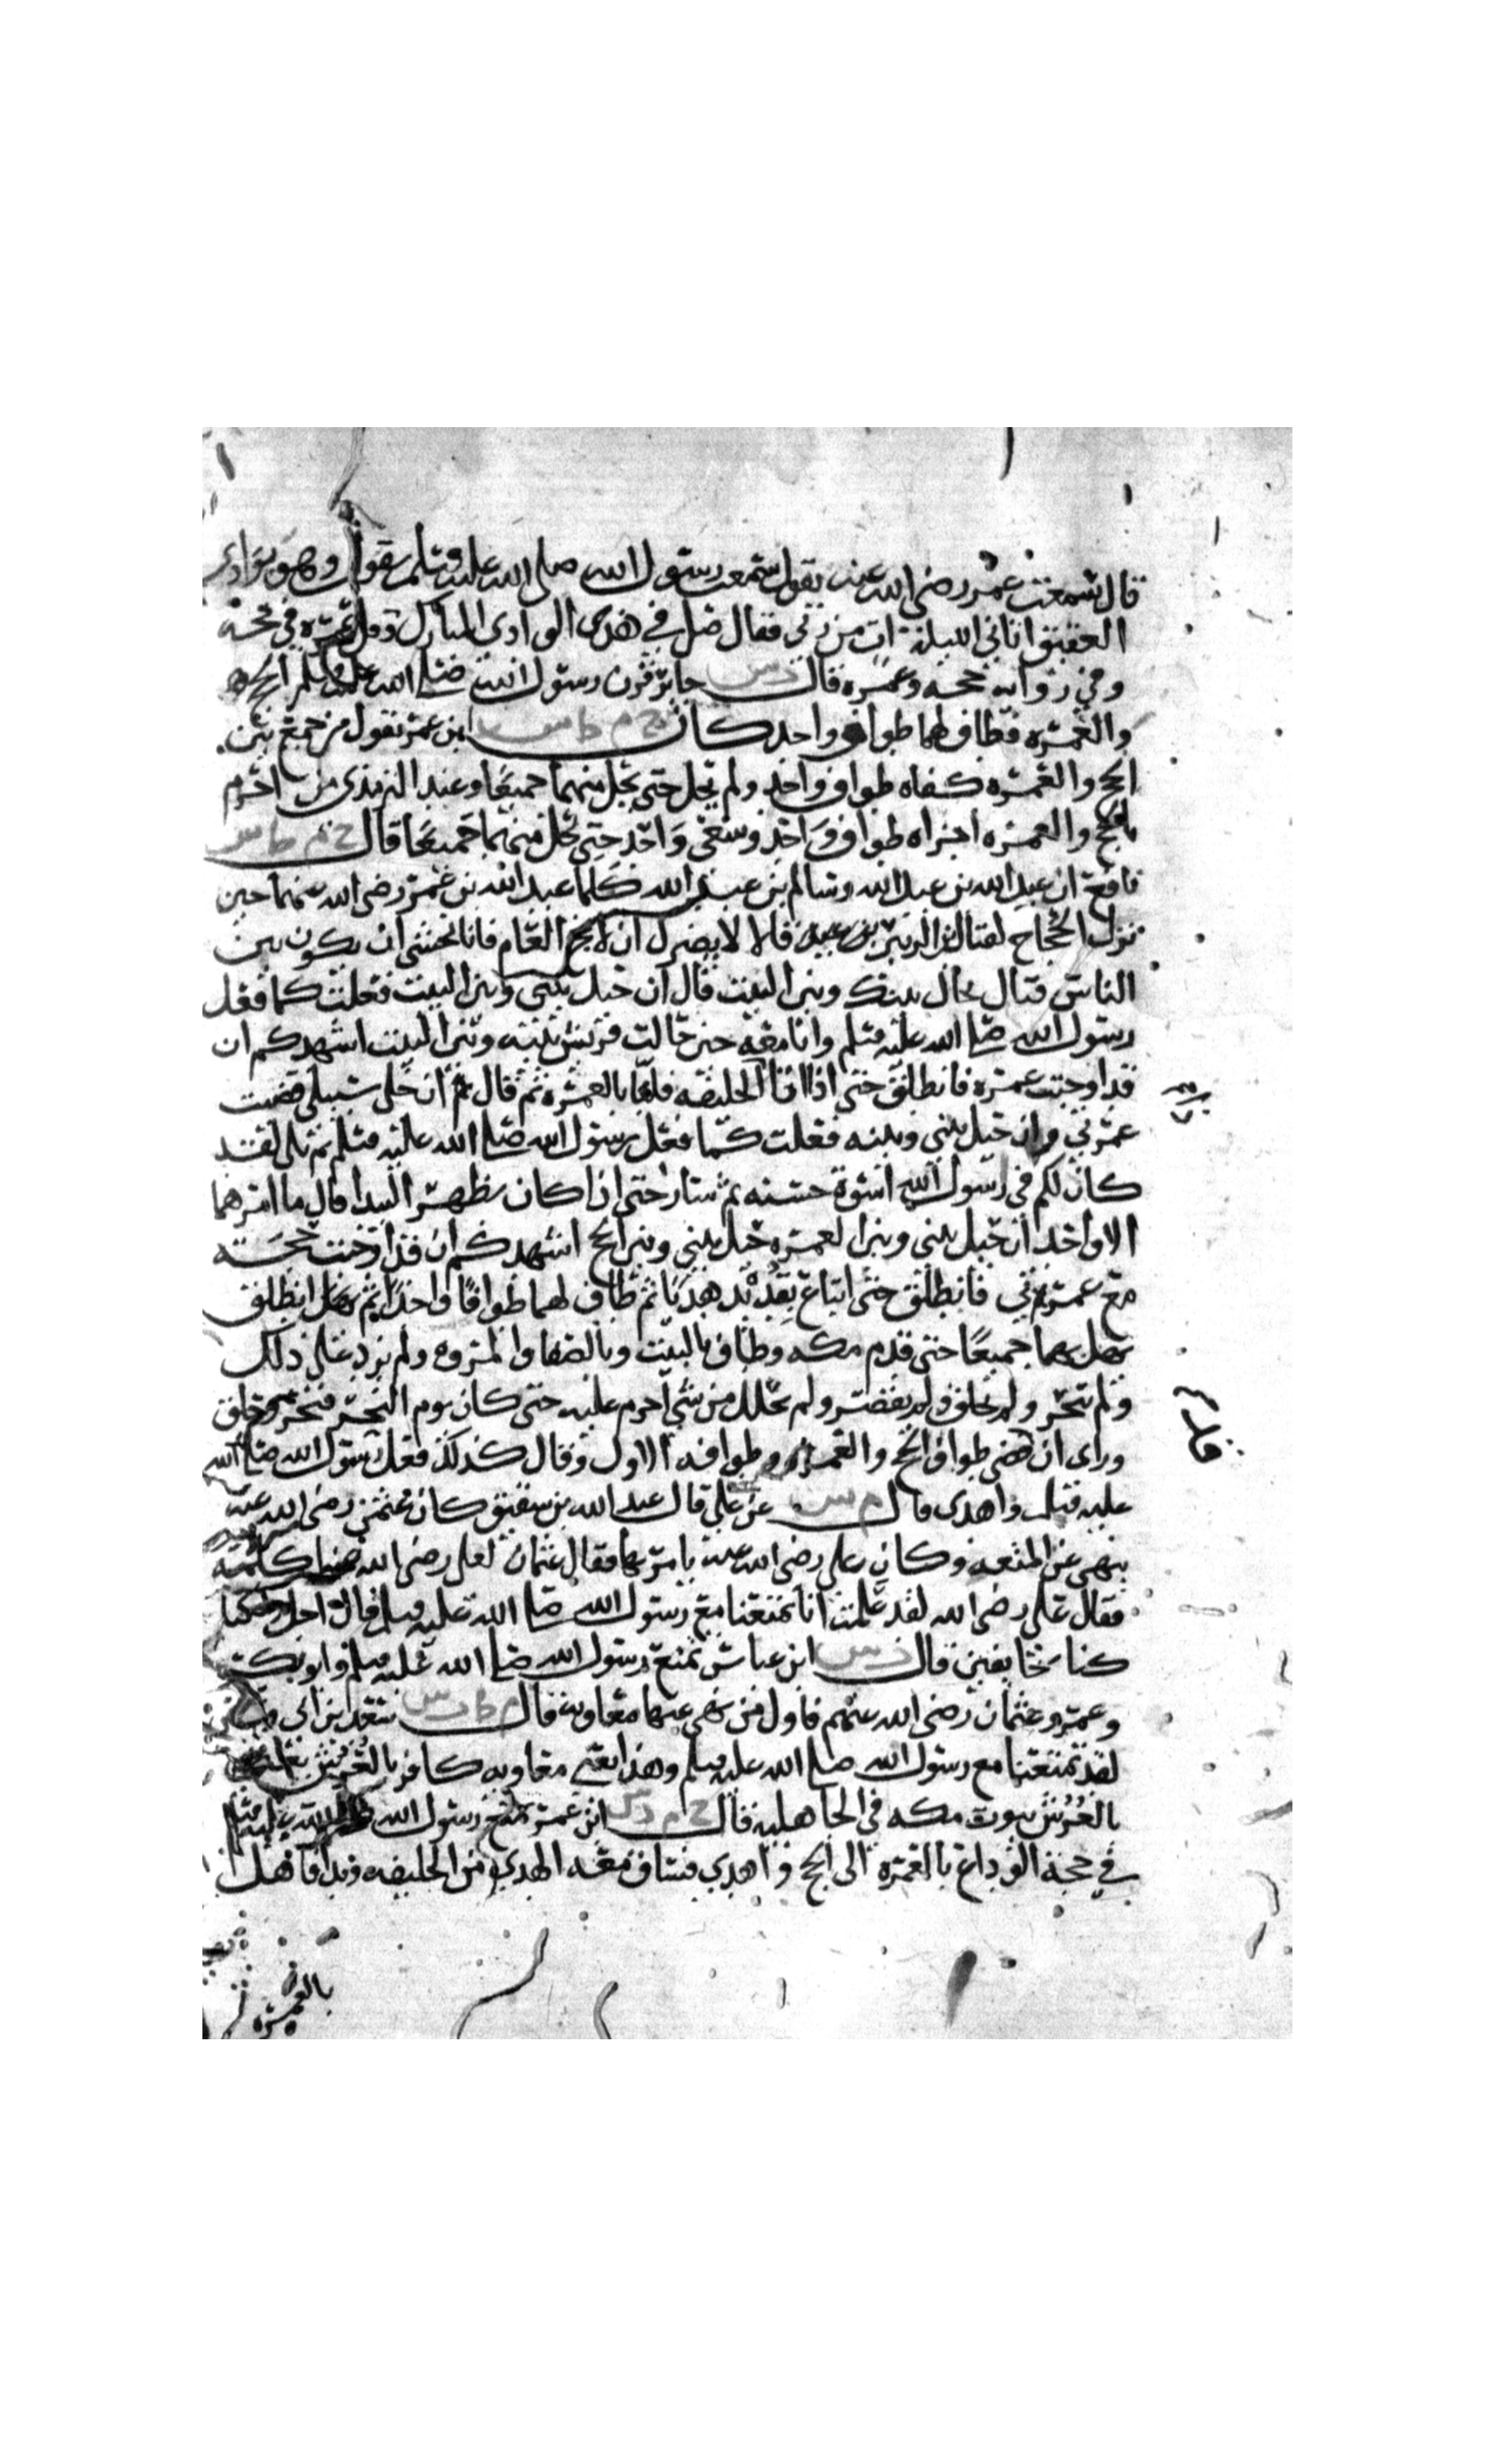 قال سمعت عمر رضى الله عنه يقول سمعت رسول الله صلى الله عليه وسلم يقول وهو بوادى
العقيق اتانى الليلة ات من ربي فقال صل في هذى الوادى المبارك وقل عمره في حجه
وفي روايه حجه وعمره قال د س جابر قرن رسول الله صلى الله عليه وسلم الحج
والعمره فطاف لهما طواف واحد كان خ م ط س ابن عمر يقول من جمع بين
الحج والعمره كفاه طواف واحد ولم يحل حتى يحل منهما جميعا وعند الترمذى من احرم
بالحج والعمره اجزاه طواف واحد وسعى واحد حتى يحل منهما جميعا قال خ م ط س
نافع ان عبد الله بن عبد الله وسالم بن عبد الله كلما عبد الله بن عمر رضى الله عنهما حين
نزل الحجاج لقتال ابن الزبير قالا لا يضرك ان لا تحج العام فانا نخشى ان يكون بين
الناس قتال يحال بينك وبين البيت قال ان حيل بيني وبين البيت فعلت كما فعل
رسول الله صلى الله عليه وسلم وانا معه حين حالت قريش بينه وبين البيت اشهدكم ان
قد اوجبت عمره فانطلق حتى اذا اتا الحليفه فلبا بالعمره ثم قال ان خلى سبيلى قضيت
عمرتي وان حيل بيني وبينه فعلت كما فعل رسول الله صلى الله عليه وسلم ثم تلى لقد
كان لكم في رسول الله اسوة حسنه ثم سار حتى اذا كان بظهر البيدا قال ما امرهما
الا واحد ان حيل بيني وبين العمره حيل بيني وبين الحج اشهدكم ان قد اوجبت حجه
مع عمرتي فانطلق حتى ابتاع بقديد هديا ثم طاف لهما طوافا واحدا ثم انطلق
يهل بهما جميعا حتى قدم مكه وطاف بالبيت وبالصفا والمروه ولم يزد على ذلك
ولم ينحر ولم يحلق ولم يقصر ولم يحلل من شي احرم عليه حتى كان يوم النحر فنحر وحلق
وراى ان قضى طواف الحج والعمره بطوافه الاول وقال كذلك فعل رسول الله صلى الله
عليه وسلم واهدى قال م س عن على قال عبد الله بن شقيق كان عثمن رضى الله عنه
ينهى عن المتعه وكان على رضى الله عنه يامر بها فقال عثمان لعلى رضى الله عنهما كلمه
فقال على رضى الله لقد علمت انا تمتعنا مع رسول الله صلى الله عليه وسلم قال اجل ولكنا
كنا خايفين قال ت س ابن عباس تمتع رسول الله صلى الله عليه وسلم وابو بكر
وعمر وعثمان رضى الله عنهم فاول من نهى عنها معاويه قال م ط ت س سعد بن ابى
لقد تمتعنا مع رسول الله صلى الله عليه وسلم وهذا يعني معاويه كافر بالعرش يعني
بالعرش بيوت مكه في الجاهليه قال خ م د س ابن عمر تمتع رسول الله صلى الله عليه وسلم
في حجة الوداع بالعمره الى الحج واهدي فساق معه الهدي من الحليفه وبدا فاهل
بالعمره